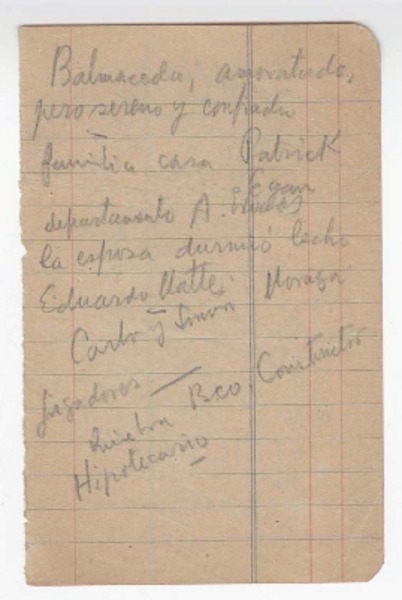 Balmaceda, amoratado,
pero sereno y confiado
familia casa Patrick
Egan
departamento A.
la esposa durmió lecho
Eduardo Matte.
Carlos y Simón Moraga
jugadores —
Quiebra Bco. Constructor
Hipotecario